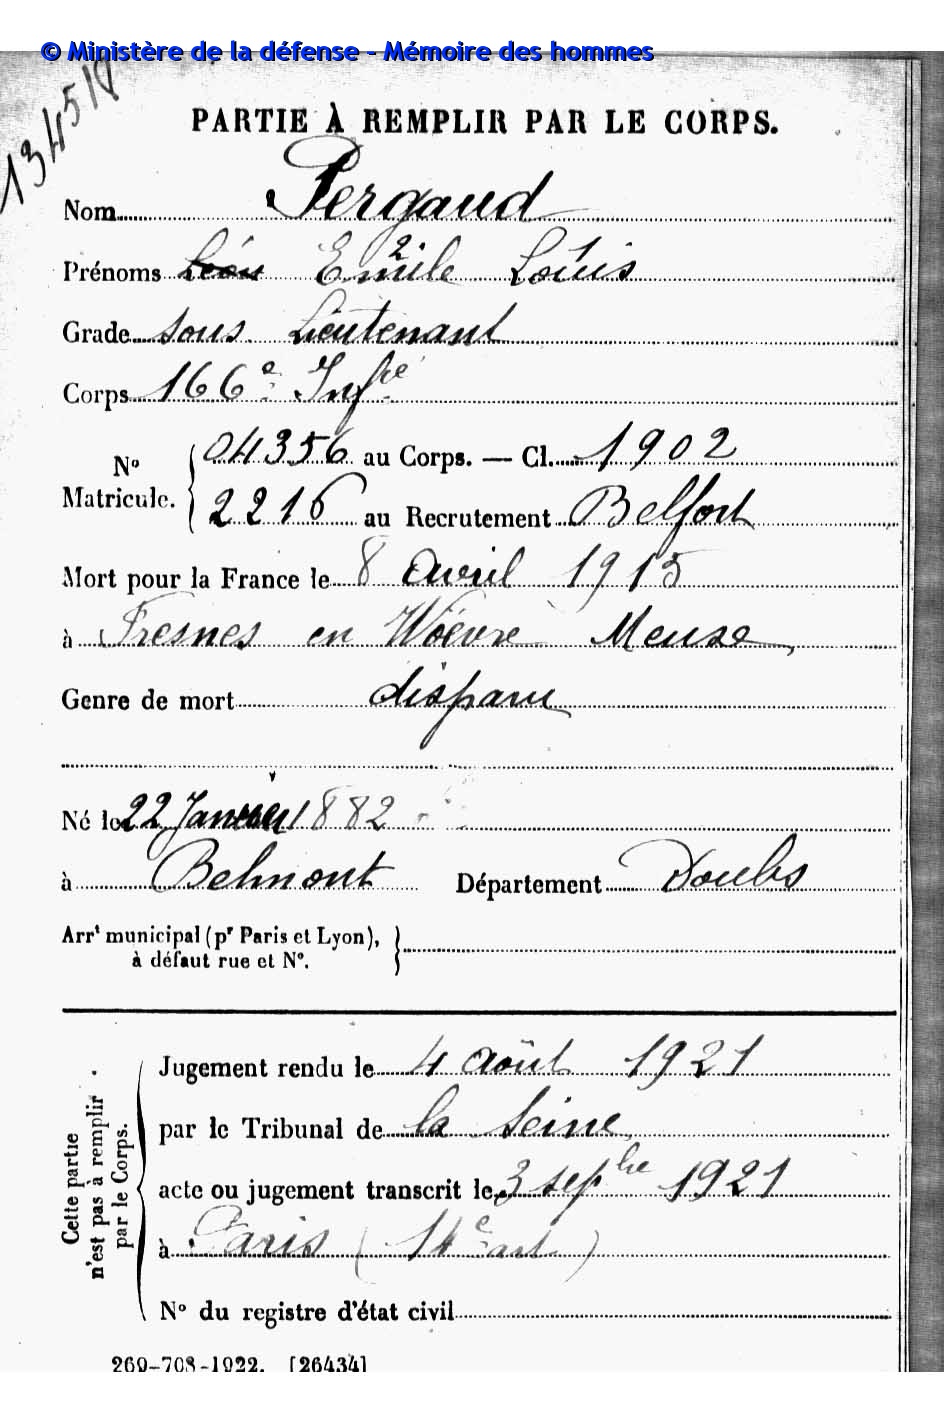 © Ministère de la défense - Mémoire des hommes
PARTIE À REMPLIR PAR LE CORPS.
Nom Pergaud
Prénoms Léon Emile 2 Louis 1
Grade sous Lieutenant
Corps 166e Infie
No Matricule. { 04356 au Corps. — Cl. 1902
2216 au Recrutement Belfort
Mort pour la France le 8 avril 1915
à Fresnes en Woëvre Meuse
Genre de mort disparu
Né le 22 Janvier 1882
à Belmont Département Doubs
Arrt municipal (pr Paris et Lyon), }
à défaut rue et No.
Cette partie n'est pas à remplir par le Corps. {
Jugement rendu le 4 août 1921
par le Tribunal de la Seine
acte ou jugement transcrit le 3 sepbre 1921
à Paris (14e art)
No du registre d'état civil
269-708-1922. [26434]